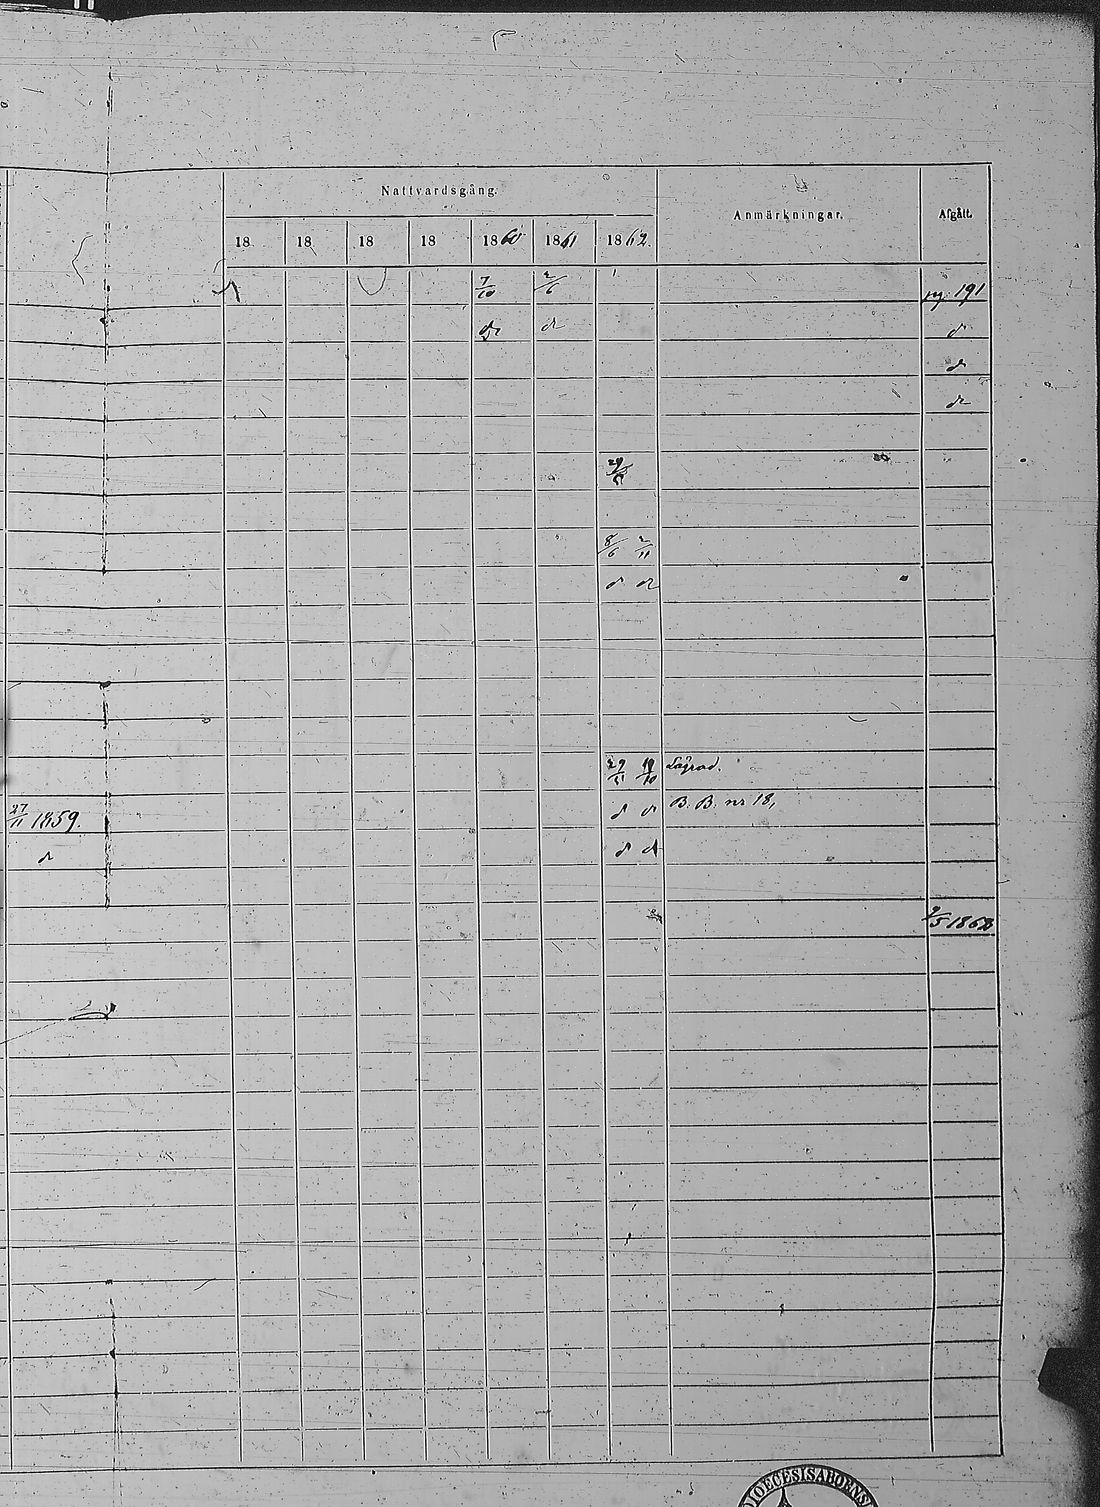 Nattvardsgång. Anmärkningar. Afgått.
18 18 18 18 1860 1861 1862.
7/10 2/6 pg. 191
d:o d:o d:o
d:o
d:o
29/5
8/6 2/11
d:o d:o
29/5 19/10 Lagrad.
27/11 1859. d:o d:o B. B. nr 18,
d:o d:o d:o
DIOECESIS ABOENSIS